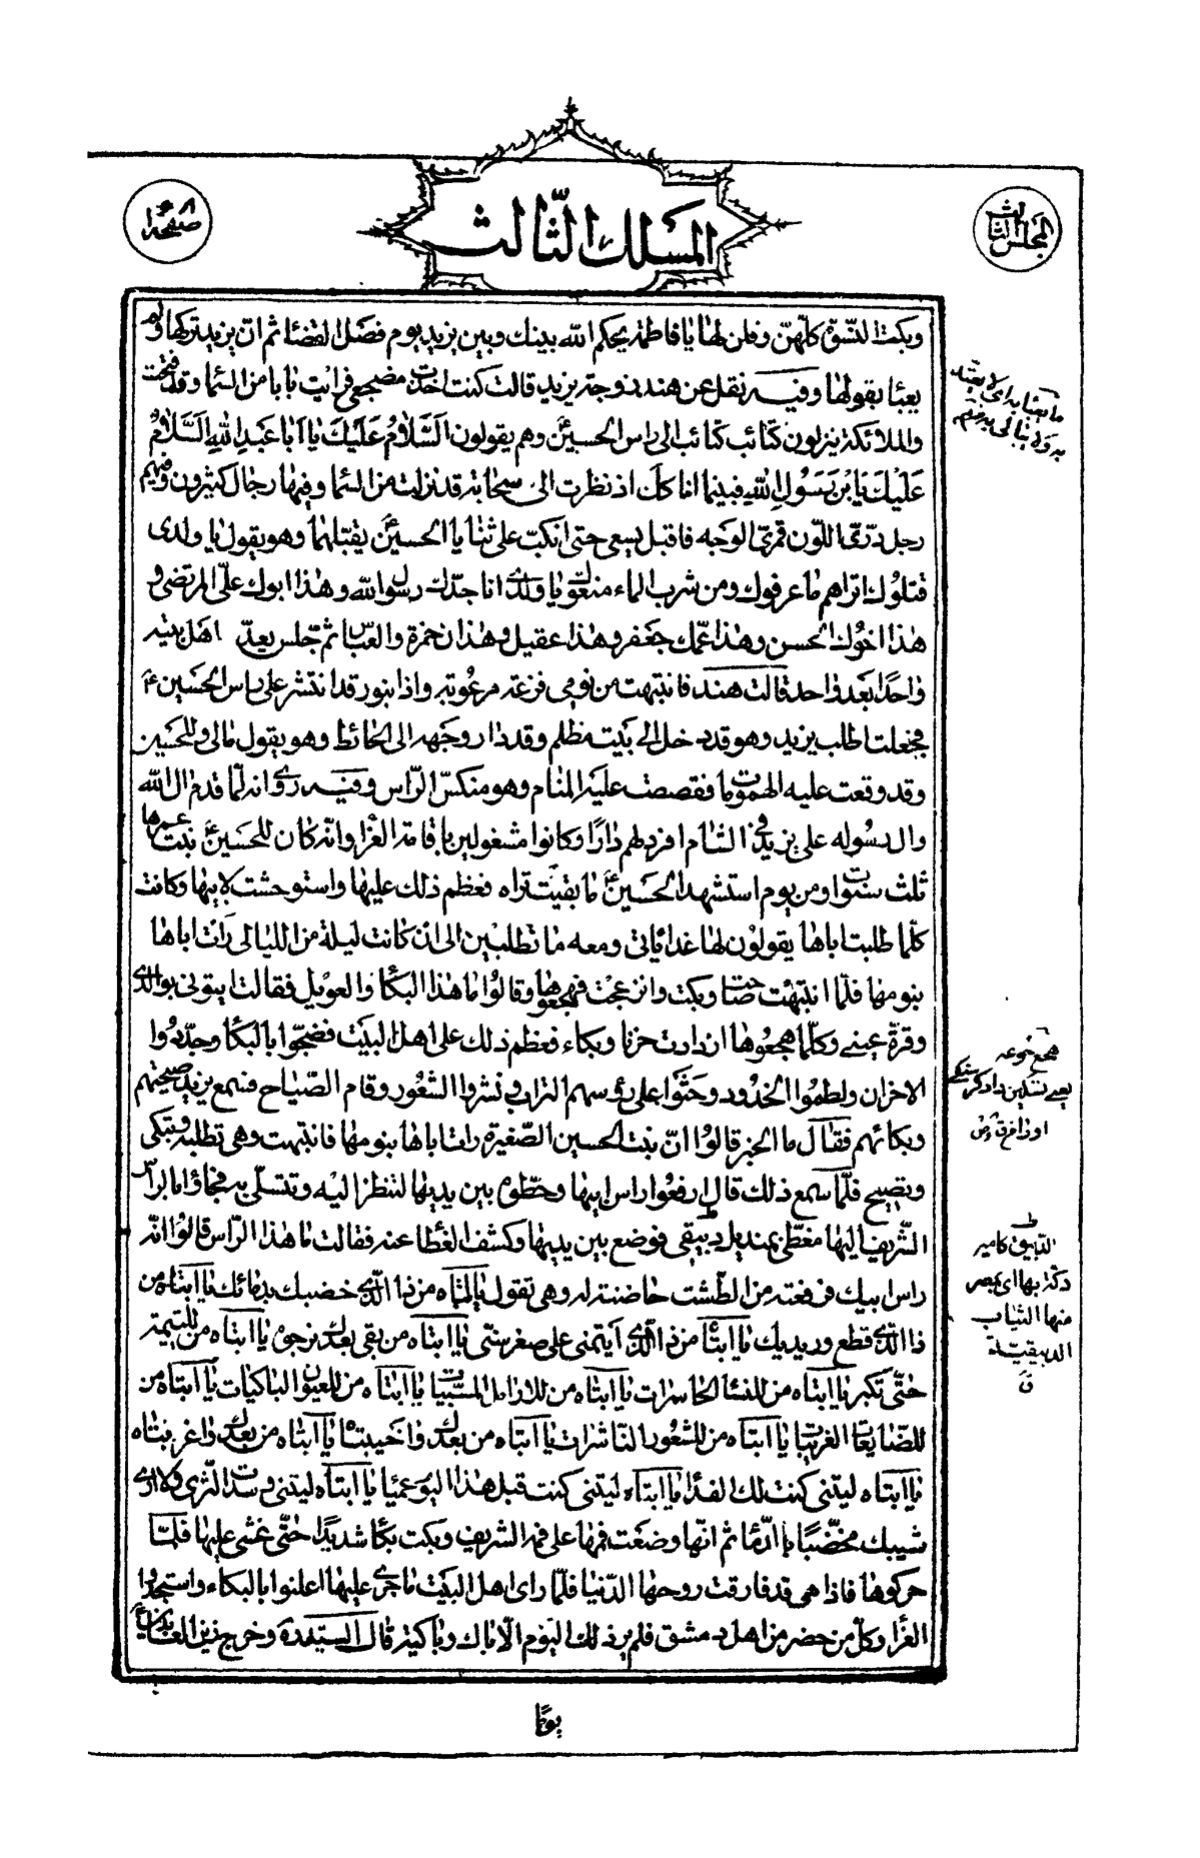 المجلس الثالث
المسلك الثالث
صفحه
وبكت النسوة كلّهنّ وقلن لها يا فاطمة يحكم الله بينك وبين يزيد يوم فصل القضاء ثم انّ يزيد تركها ولم
يعبأ بقولها وفيه نقل عن هند زوجة يزيد قالت كنت اخذت مضجعي فرايت بابا من السّماء وقد فتحت
والملائكة ينزلون كتائب كتائب الى راس الحسينؑ وهم يقولون السَّلَامُ عَلَيْكَ يَا اَبَا عَبْدِ اللهِ السَّلَامُ
عَلَيْكَ يَا بْنَ رَسُولِ اللهِ فبينما انا كك اذ نظرت الى سحابة قد نزلت من السّماء وفيها رجال كثيرون وفيهم
رجل درّيّ اللّون قمريّ الوجه فاقبل يسعى حتى انكبّ على ثنايا الحسينؑ يقبّلهما وهو يقول يا ولدى
قتلوك اتراهم ما عرفوك ومن شرب الماء منعوك يا ولدى انا جدّك رسول الله وهذا ابوك علىّ المرتضى و
هذا اخوك الحسن وهذا عمّك جعفر وهذا عقيل وهذان حمزة والعبّاس ثم جلس يعدّ اهل بيته
واحدًا بعد واحد قالت هند فانتبهت من نومى فزعة مرعوبة واذا بنور قد انتشر على راس الحسينؑ
فجعلت اطلب يزيد وهو قد دخل الى بيت مظلم وقد دار وجهه الى الحائط وهو يقول مالى وللحسين
وقد وقعت عليه الهمومات فقصصت عليه المنام وهو منكس الرّاس وفيه روى انه لمّا قدم ال الله
وال رسوله على يزيد فى الشام افرد لهم دارًا وكانوا مشغولين باقامة العزاء وانه كان للحسينؑ بنت عمرها
ثلث سنوات ومن يوم استشهد الحسينؑ ما بقيت تراه فعظم ذلك عليها واستوحشت لابيها وكانت
كلّما طلبت اباها يقولون لها غدا ياتى ومعه ما تطلبين الى ان كانت ليلة من الليالى رات اباها
بنومها فلمّا انتبهت صاحت وبكت وانزعجت فهجعوها وقالوا ما هذا البكاء والعويل فقالت ايتونى بوالدى
وقرة عينى وكلّما هجعوها ازدادت حزنا وبكاء فعظم ذلك على اهل البيت فضجّوا بالبكاء وجدّدوا
الاحزان ولطموا الخدود وحثوا على رؤسهم التراب ونشروا الشعور وقام الصّياح فسمع يزيد صيحتهم
وبكائهم فقال ما الخبر قالوا انّ بنت الحسين الصّغيرة رات اباها بنومها فانتبهت وهى تطلبه وتبكى
وتصيح فلمّا سمع ذلك قال ارفعوا راس ابيها وحطّوه بين يديها لتنظر اليه وتتسلّى به فجاؤا بالراس
الشّريف اليها مغطّى بمنديل دبيقى فوضع بين يديها وكشف الغطاء عنه فقالت ما هذا الرّاس قالوا انه
راس ابيك فرفعته من الطّشت حاضنة له وهى تقول يا ابتاه من ذا الّذى خضبك بدمائك يا ابتاه من
ذا الّذى قطع وريديك يا ابتاه من ذا الّذى ايتمنى على صغر سنّى يا ابتاه من بقى بعدك نرجوه يا ابتاه من لليتيمة
حتّى تكبر يا ابتاه من للنساء الحاسرات يا ابتاه من للارامل المسبيات يا ابتاه من للعيون الباكيات يا ابتاه من
للضّايعات الغريبات يا ابتاه من للشعور الناشرات يا ابتاه من بعدك واخيبتاه يا ابتاه من بعدك واغربتاه
يا ابتاه ليتنى كنت لك الفداء يا ابتاه ليتنى كنت قبل هذا اليوم عمياء يا ابتاه ليتنى وسدت الثرى ولا ارى
شيبك مخضّبًا بالدّماء ثم انّها وضعت فمها على فمه الشريف وبكت بكاء شديدًا حتّى غشى عليها فلمّا
حركوها فاذا هى قد فارقت روحها الدّنيا فلمّا راى اهل البيت ما جرى عليها اعلنوا بالبكاء واستجدّوا
العزاء وكلّ من حضر من اهل دمشق فلم ير ذلك اليوم الّا باك وباكية قال السيدره وخرج زين العابدينؑ
يومًا
هجع
الدبيق كامير
منها الثياب
الدبيقية
ق